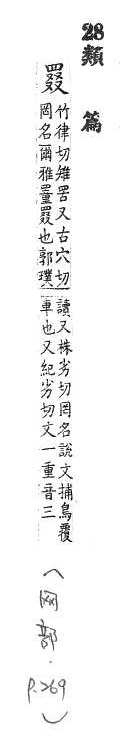 28
類篇
罬
竹律切雉罟又古穴切
罔名爾雅罿罬也郭璞
讀又株劣切罔名說文捕鳥覆
車也又紀劣切文一重音三
(网部.
P.269)